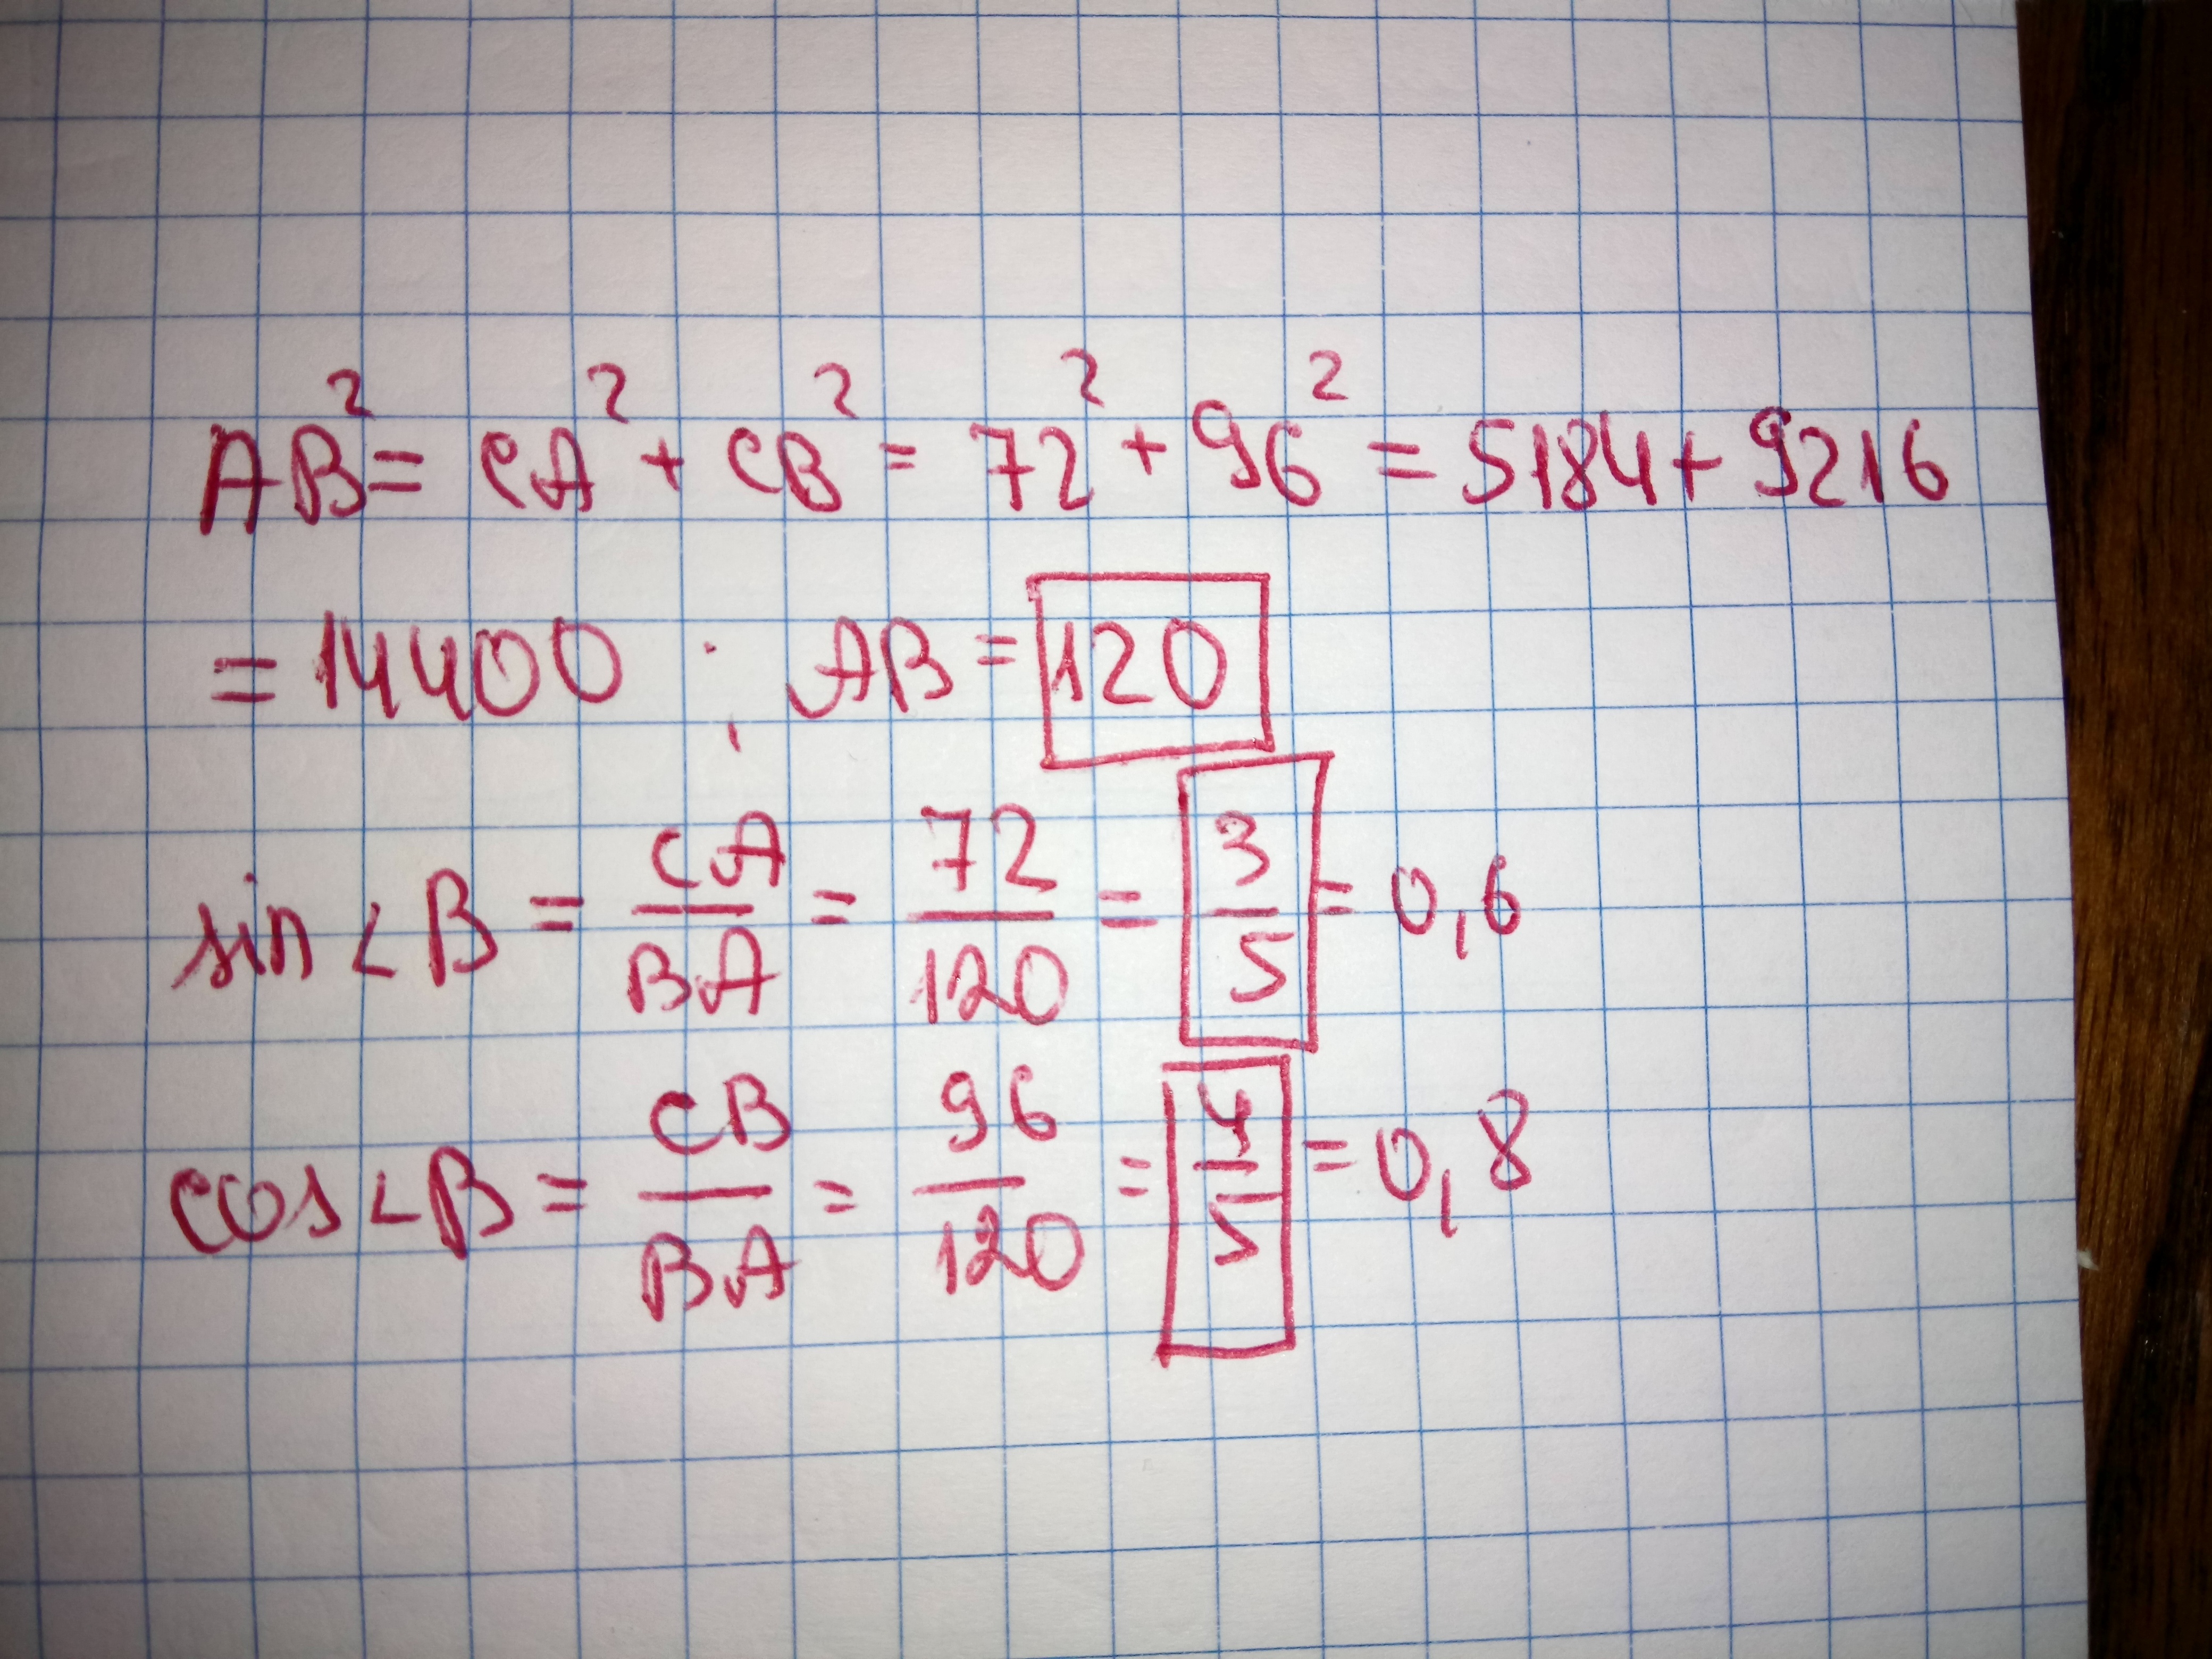 AB² = CA² + CB² = 72² + 96² = 5184 + 9216
= 14400 ; AB = 120
sin ∠B = CA/BA = 72/120 = 3/5 = 0,6
cos ∠B = CB/BA = 96/120 = 4/5 = 0,8